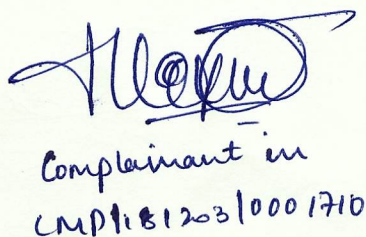 Complainant in
CMP/181203/0001710